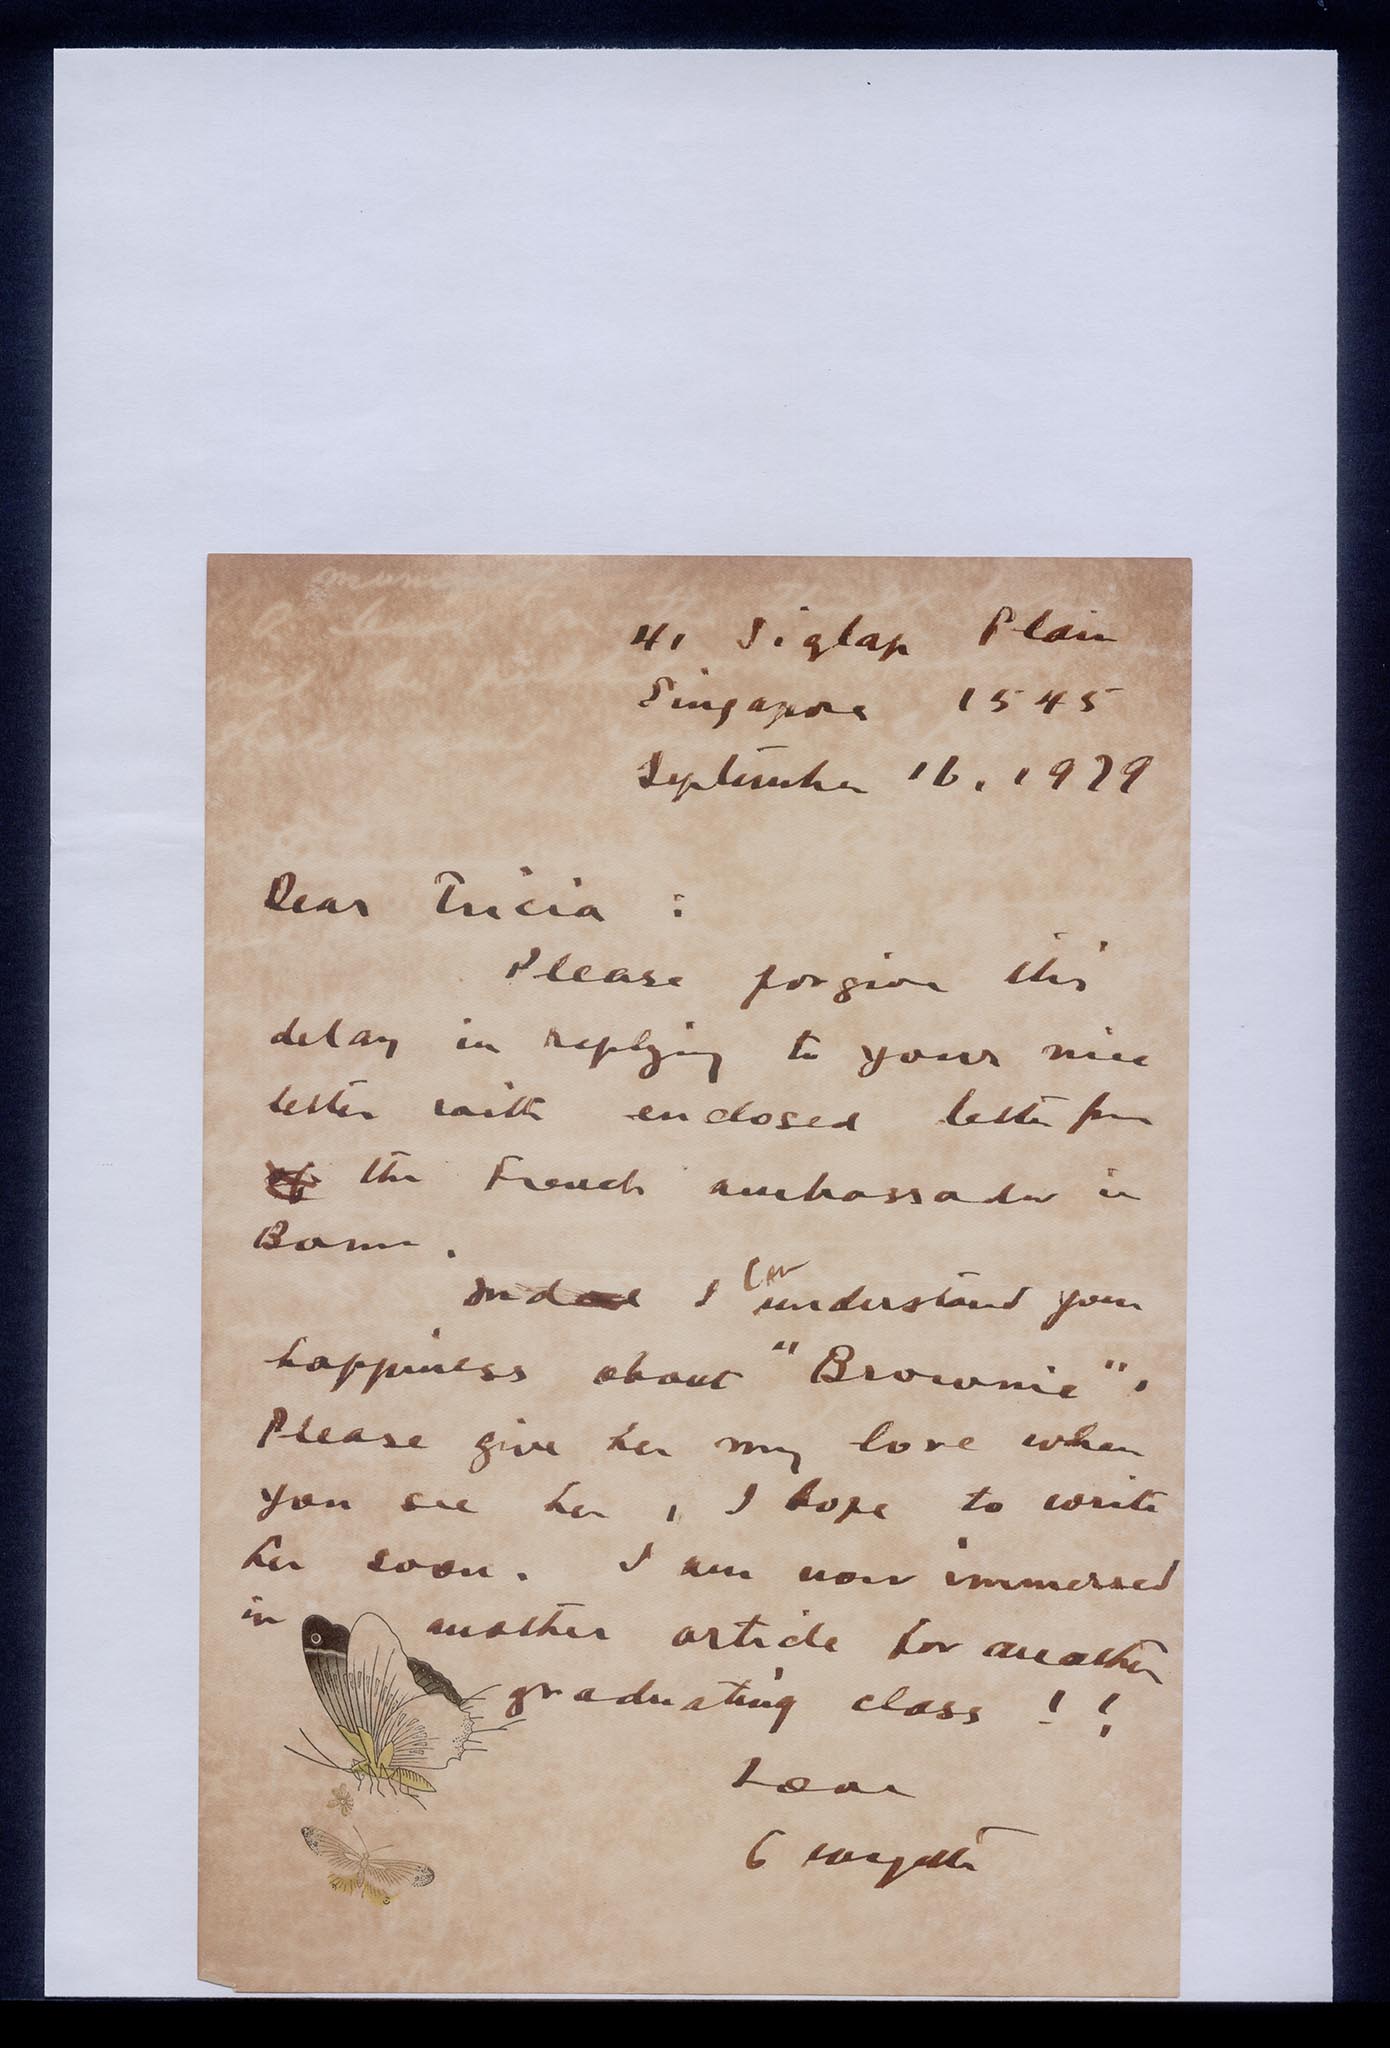 41 Siglap Plain
Singapore 1545
September 16, 1979
Dear Tricia :
Please forgive this
delay in replying to your nice
letter with enclosed letter from
of the French ambassador in
Bonn.
Indeed I can understand your
happiness about "Brownie".
Please give her my love when
you see her, I hope to write
her soon. I am now immersed
in another article for another
graduating class !!
Love
Georgette